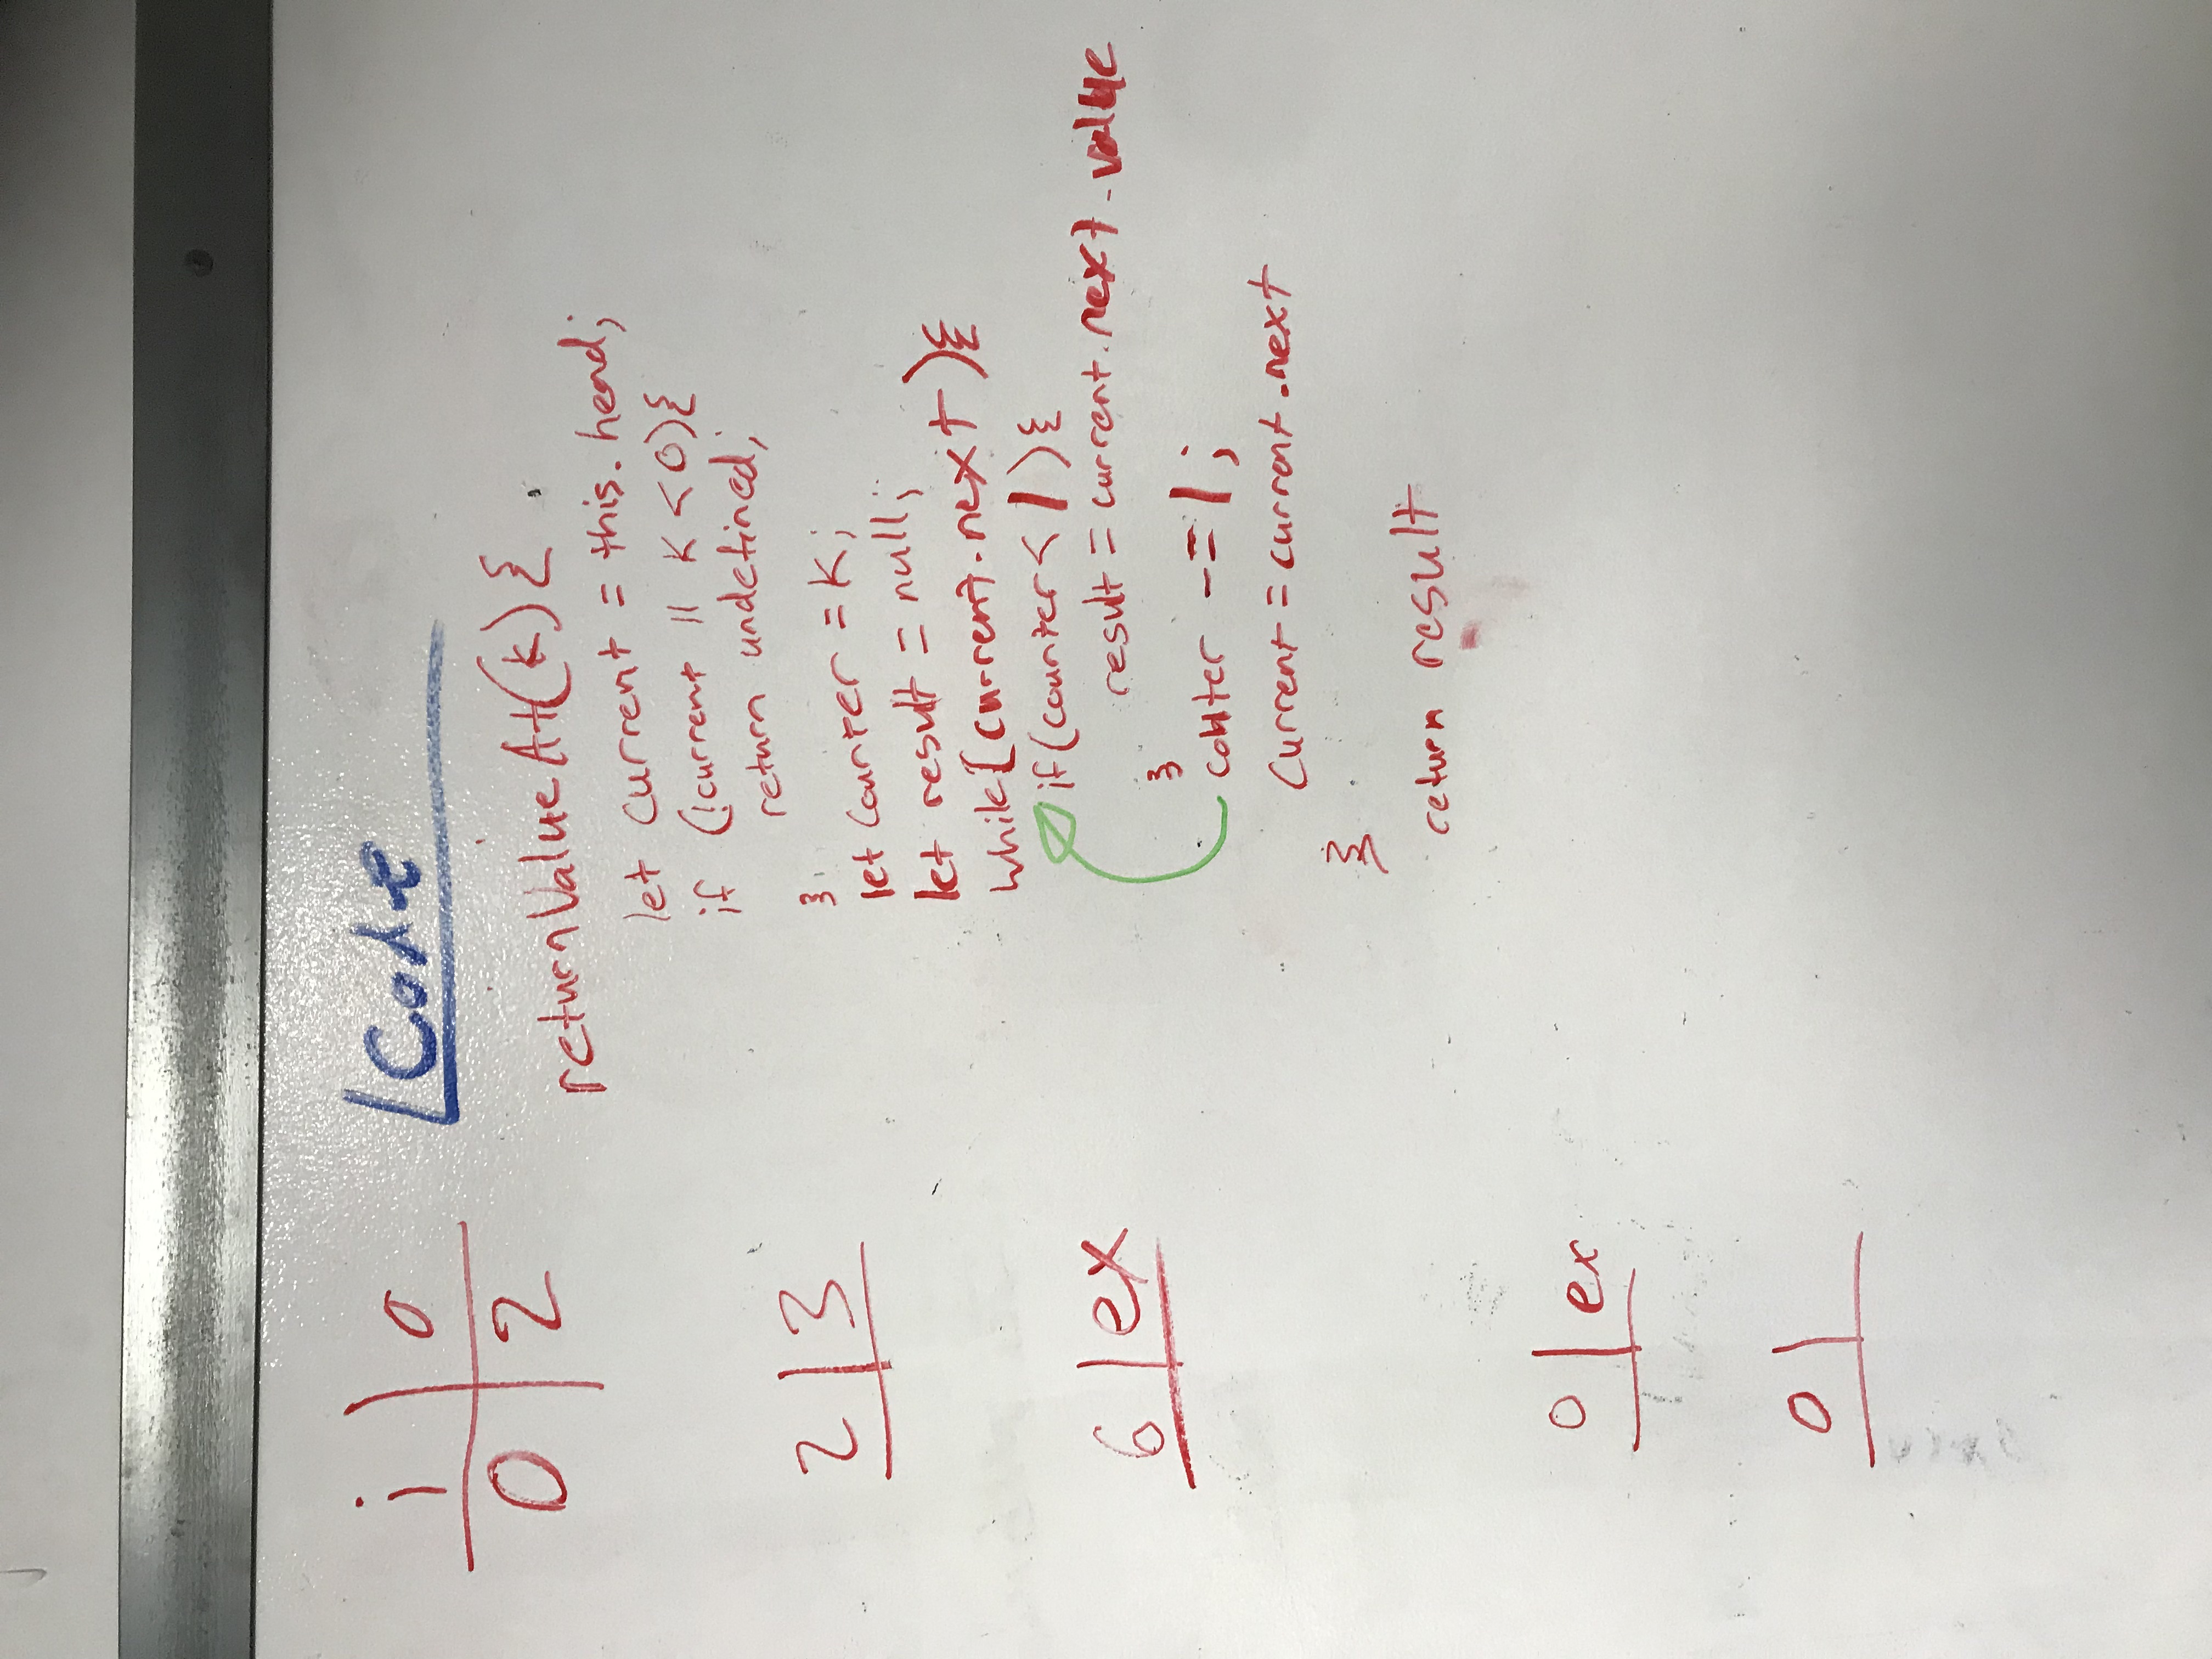 i | o
0 | 2
2 | 3
6 | ex
0 | ex
0 |
Code
returnValueAt(k){
let current = this.head;
if (!current || k < 0){
return undefined;
}
let counter = k;
let result = null;
while(current.next){
if(counter < 1){
result = current.next.value
}
counter -= 1;
current = current.next
}
return result